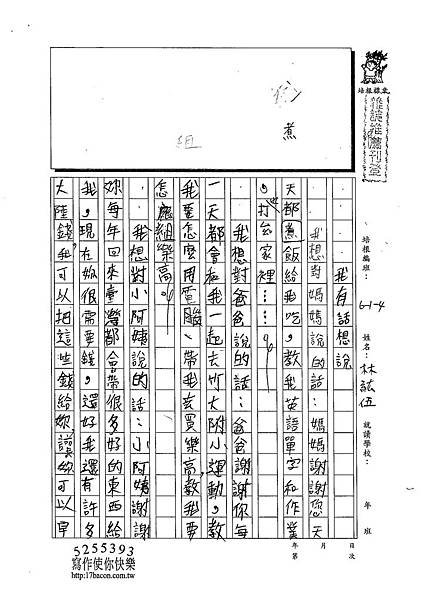 培根樣欒
雜誌推薦刊登
培根編班：
61-4
姓名：林誌伍
就讀學校：
年
班
煮
組
年
月
日
第
次
我有話想說
我想對媽媽說的話：媽媽謝謝您天
天都煮飯給我吃，教我英語單字和作業
，打台家裡……。
我想對爸爸說的話：爸爸謝謝你每
一天都會和我一起去竹大附小運動，教
我要怎麼用電腦、帶我去買樂高，教我要
怎麼組樂高。
我想對小阿姨說的話：小阿姨謝謝
妳每年回來臺灣都會帶很多好的東西給
我，現在妳很需要錢，還好我還有許多
大陸錢，我可以把這些錢給妳，讓妳可以早
5255393
寫作使你快樂
http://17bacon.com.tw/